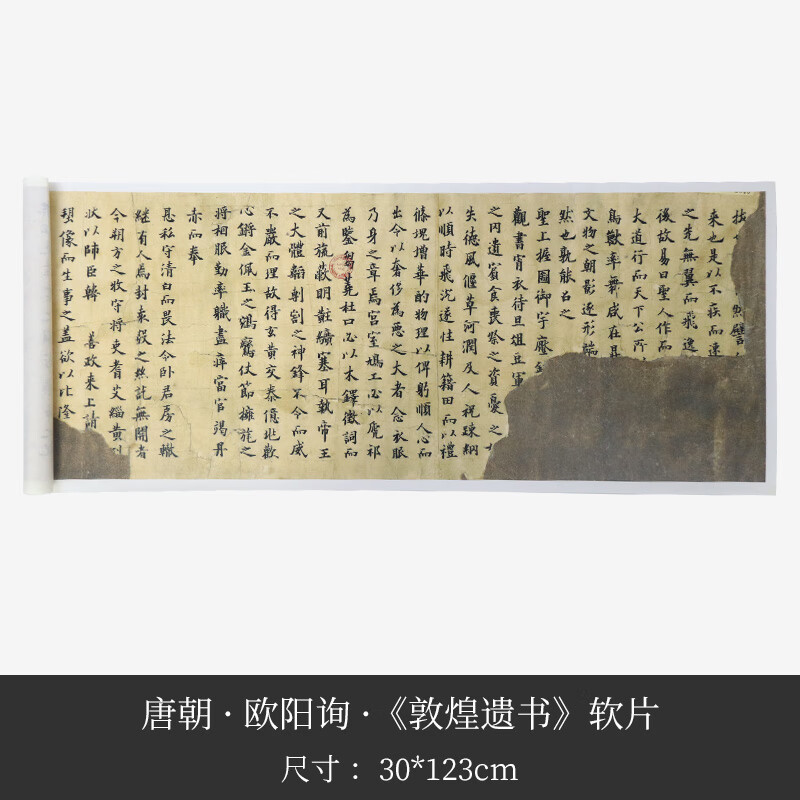 拔
然譬
来也是以不疾而速
之先無翼而飛逸
後故易曰聖人作而
大道行而天下公所
鳥獸率舞咸在
文物之朝影逐形端
然也孰能名之
聖上握圖御宇
觀書宵衣待旦俎豆軍
之內遺賓食喪祭之資憂之
失德風偃草河潤及人祝踈網
以順時飛沉遂性耕籍田而以禮
修堤增華酌物理以俾躬順人心而
出令以奢侈為惡之大者念衣服
乃身之章焉宮室媯工必以庇祁
為鑒蒭蕘杜口必以木鐸徵詞而
又前旒蔽明黈纊塞耳執帝王
之大體韜剸割之神鋒不令而威
不嚴而理故得玄黃交泰億兆歡
心鏘金佩玉之鴻鸞仗節擁旄之
將相服勤率職盡瘁當官竭丹
赤而奉
息私守清白而畏法令卧君房之轍
继有人焉封袁毅之絲託無聞者
今朔方之牧守將吏耆艾緇黃列
狀以師臣轉
善政来上請
琪像而生事之盖欲以比隆
唐朝·欧阳询·《敦煌遗书》软片
尺寸：30*123cm